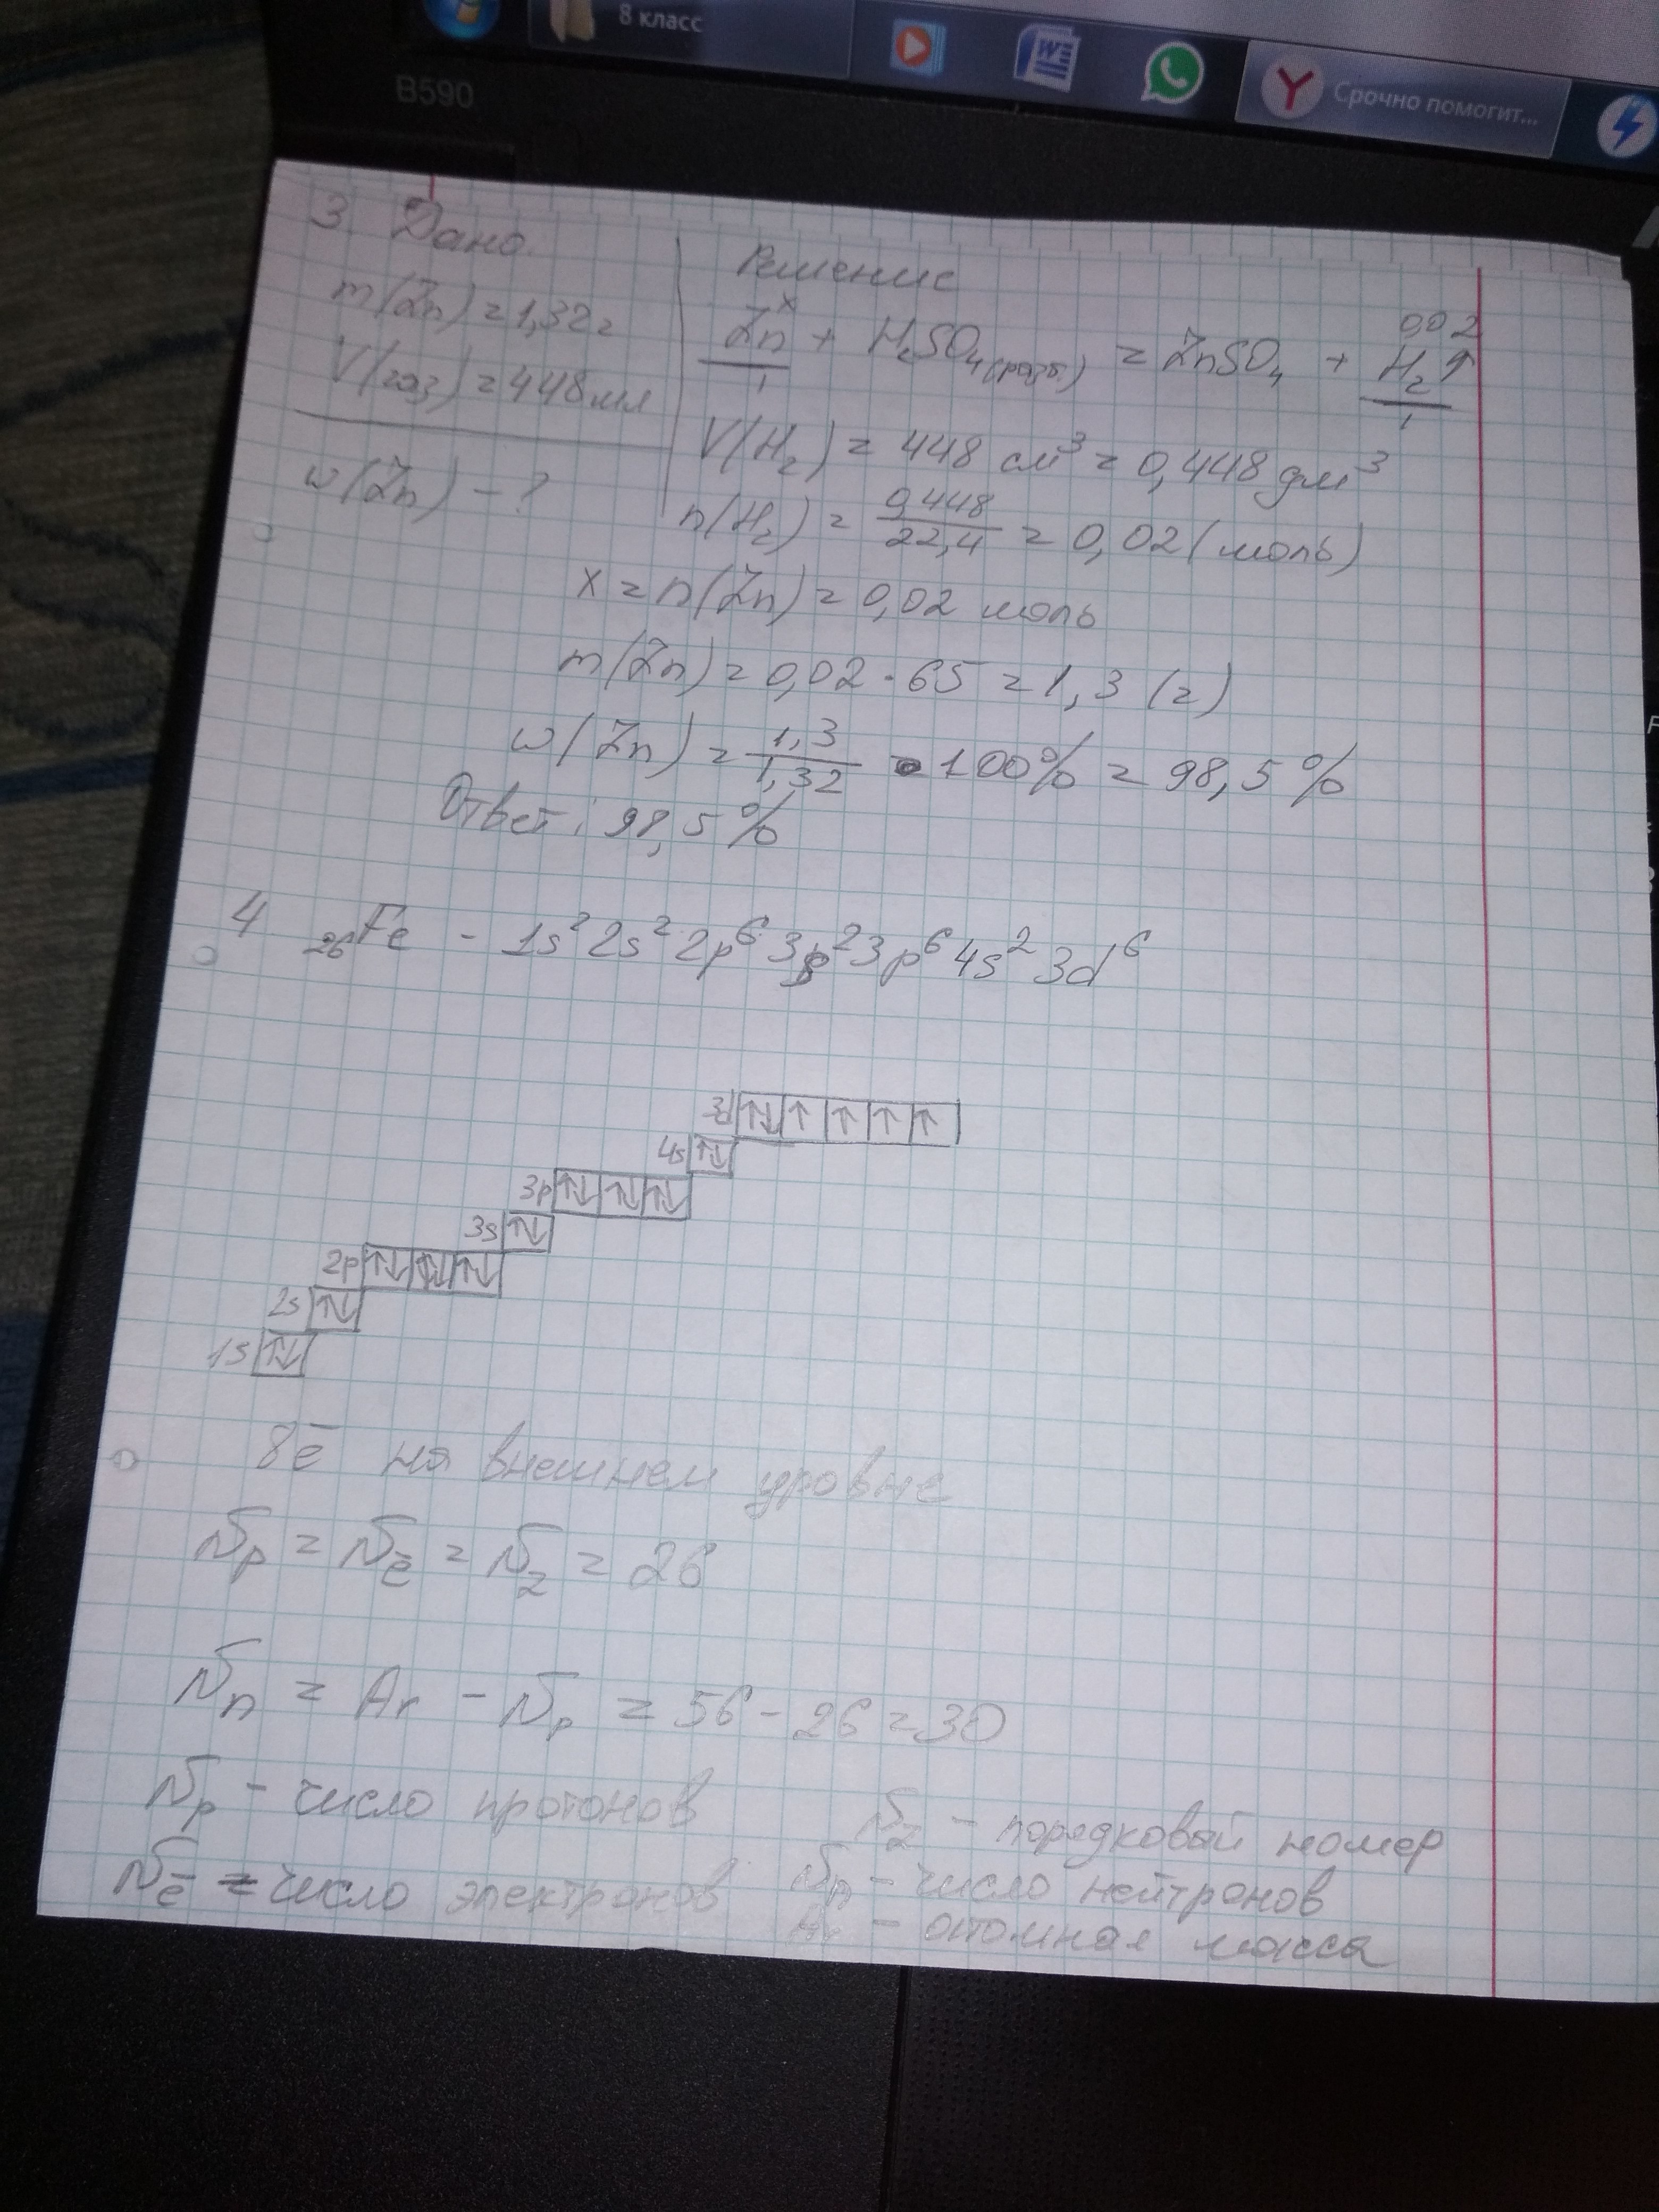 8 класс
Срочно помогит...
B590
3 Дано.
m(Zn)=1,32г
V(газ)=448мл
w(Zn)-?
Решение
x 0,02
Zn + H2SO4(разб.) = ZnSO4 + H2↑
1 1
V(H2) = 448 см³ = 0,448 дм³
n(H2) = 0,448/22,4 = 0,02 (моль)
x = n(Zn) = 0,02 моль
m(Zn) = 0,02 · 65 = 1,3 (г)
w(Zn) = 1,3/1,32 • 100% = 98,5 %
Ответ: 98,5 %
4 26Fe - 1s² 2s² 2p⁶ 3s² 3p⁶ 4s² 3d⁶
3d ↑↓ ↑ ↑ ↑ ↑
4s ↑↓
3p ↑↓ ↑↓ ↑↓
3s ↑↓
2p ↑↓ ↑↓ ↑↓
2s ↑↓
1s ↑↓
8ē на внешнем уровне
Np = Nē = Nz = 26
Nn = Ar - Np = 56 - 26 = 30
Np - число протонов
Nē = число электронов
Nz - порядковый номер
Nn - число нейтронов
Ar - атомная масса